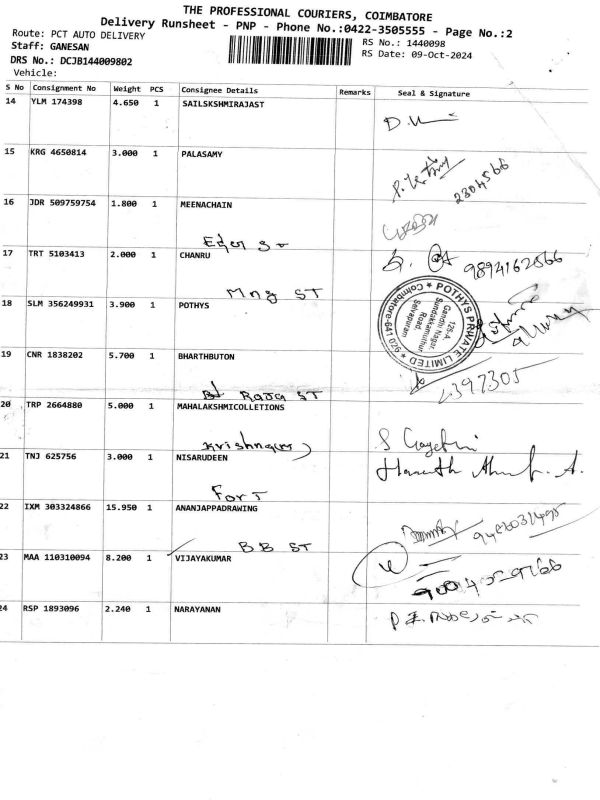 THE PROFESSIONAL COURIERS, COIMBATORE
Delivery Runsheet - PNP - Phone No.:0422-3505555 - Page No.:2
Route: PCT AUTO DELIVERY
Staff: GANESAN
RS No.: 1440098
DRS No.: DCJB144009802
RS Date: 09-Oct-2024
Vehicle:
S No Consignment No Weight PCS Consignee Details Remarks Seal & Signature
14 YLM 174398 4.650 1 SAILSKSHMIRAJAST
15 KRG 4650814 3.000 1 PALASAMY
2304566
16 JDR 509759754 1.800 1 MEENACHAIN
17 TRT 5103413 2.000 1 CHANRU
9894162566
Mng ST
18 SLM 356249931 3.900 1 POTHYS
POTHYS PRIVATE LIMITED
125-A,
Gandhi Nagar,
Sundakkamuthur
Road,
Selvapuram
Coimbatore-641 026
19 CNR 1838202 5.700 1 BHARTHBUTON
2397305
Raja ST
20 TRP 2664880 5.000 1 MAHALAKSHMICOLLETIONS
21 TNJ 625756 3.000 1 NISARUDEEN
Fort
22 IXM 303324866 15.950 1 ANANJAPPADRAWING
BB ST
23 MAA 110310094 8.200 1 VIJAYAKUMAR
24 RSP 1893096 2.240 1 NARAYANAN